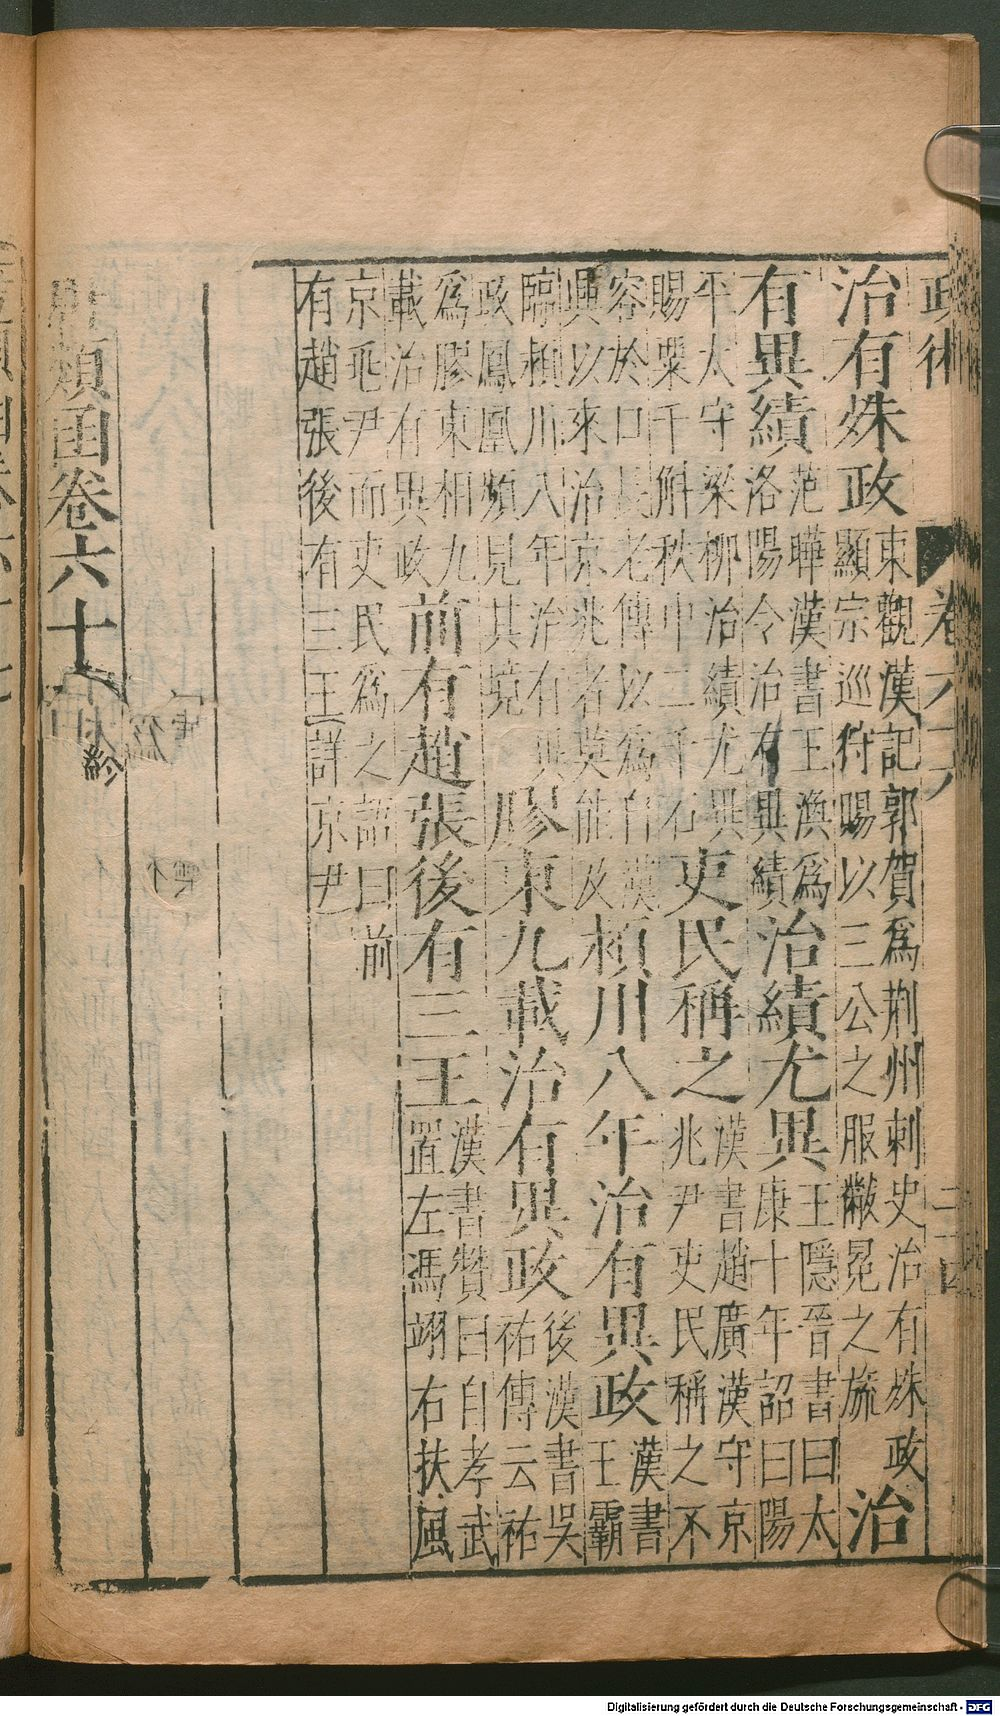 政術　卷六六
治有殊政
東觀漢記郭賀爲荆州刺史治有殊政
顯宗巡狩賜以三公之服黻冕之旒
治
有異績
范曄漢書王渙爲
洛陽令治有異績
治績尤異
王隱晉書曰太
康十年詔曰陽
平太守梁柳治績尤異
賜粟千斛秩中二千石
吏民稱之
漢書趙廣漢守京
兆尹吏民稱之不
容於口長老傳以爲自漢
興以來治京兆者莫能及
潁川八年治有異政
漢書
王霸
臨潁川八年治有異
政鳳凰頻見其境
膠東九載治有異政
後漢書吳
祐傳云祐
爲膠東相九
載治有異政
前有趙張後有三王
漢書贊曰自孝武
置左馮翊右扶風
京兆尹而吏民爲之語曰前
有趙張後有三王詳京尹
類函卷六十
Digitalisierung gefördert durch die Deutsche Forschungsgemeinschaft - DFG